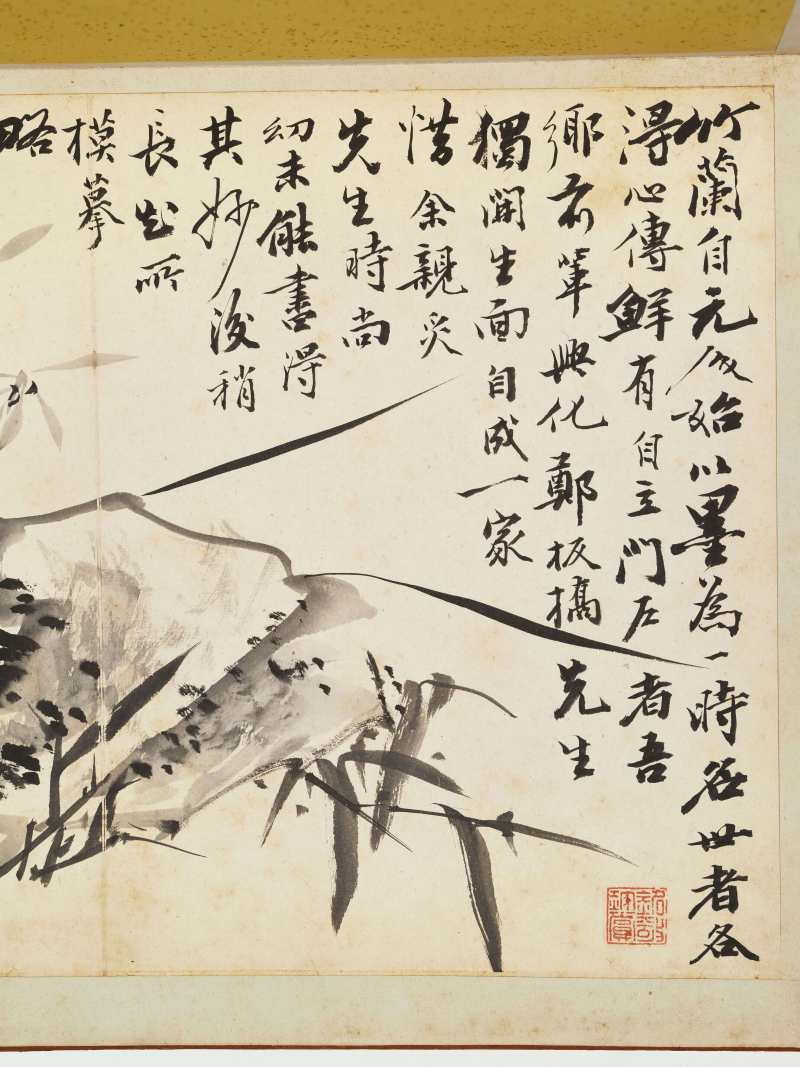 竹蘭自元人始以墨為一時名世者各
得心傳鮮有自立門戶者吾
鄉前輩興化鄭板橋先生
獨開生面自成一家
惜余親炙
先生時尚
幼未能書得
其妙後稍
長知所
模摹
略